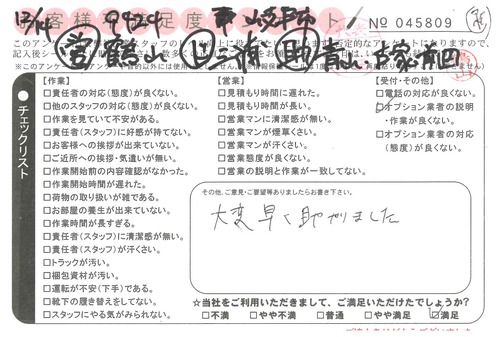 № 045809
チェックリスト
【作業】
□責任者の対応(態度)が良くない。
□他のスタッフの対応(態度)が良くない。
□作業を見ていて不安がある。
□責任者(スタッフ)に好感が持てない。
□お客様への挨拶が出来ていない。
□ご近所への挨拶・気遣いが無い。
□作業開始前の内容確認がなかった。
□作業開始時間が遅れた。
□荷物の取り扱いが雑である。
□お部屋の養生が出来ていない。
□作業時間が長すぎる。
□責任者(スタッフ)に清潔感が無い。
□責任者(スタッフ)が汗くさい。
□トラックが汚い。
□梱包資材が汚い。
□運転が不安(下手)である。
□靴下の履き替えをしてない。
□スタッフにやる気がみられない。
【営業】
□見積もり時間に遅れた。
□見積もり時間が長い。
□営業マンに清潔感が無い。
□営業マンが煙草くさい。
□営業マンが汗くさい。
□営業態度が良くない。
□営業の説明と作業が一致してない。
【受付・その他】
□電話の対応が良くない。
□オプション業者の説明
・作業が良くない。
□オプション業者の対応
(態度)が良くない。
その他、ご意見・ご要望等ありましたらお書き下さい。
大変早く助かりました
☆当社をご利用いただきまして、ご満足いただけたでしょうか?
□不満 □やや不満 □普通 □やや満足 ☑満足